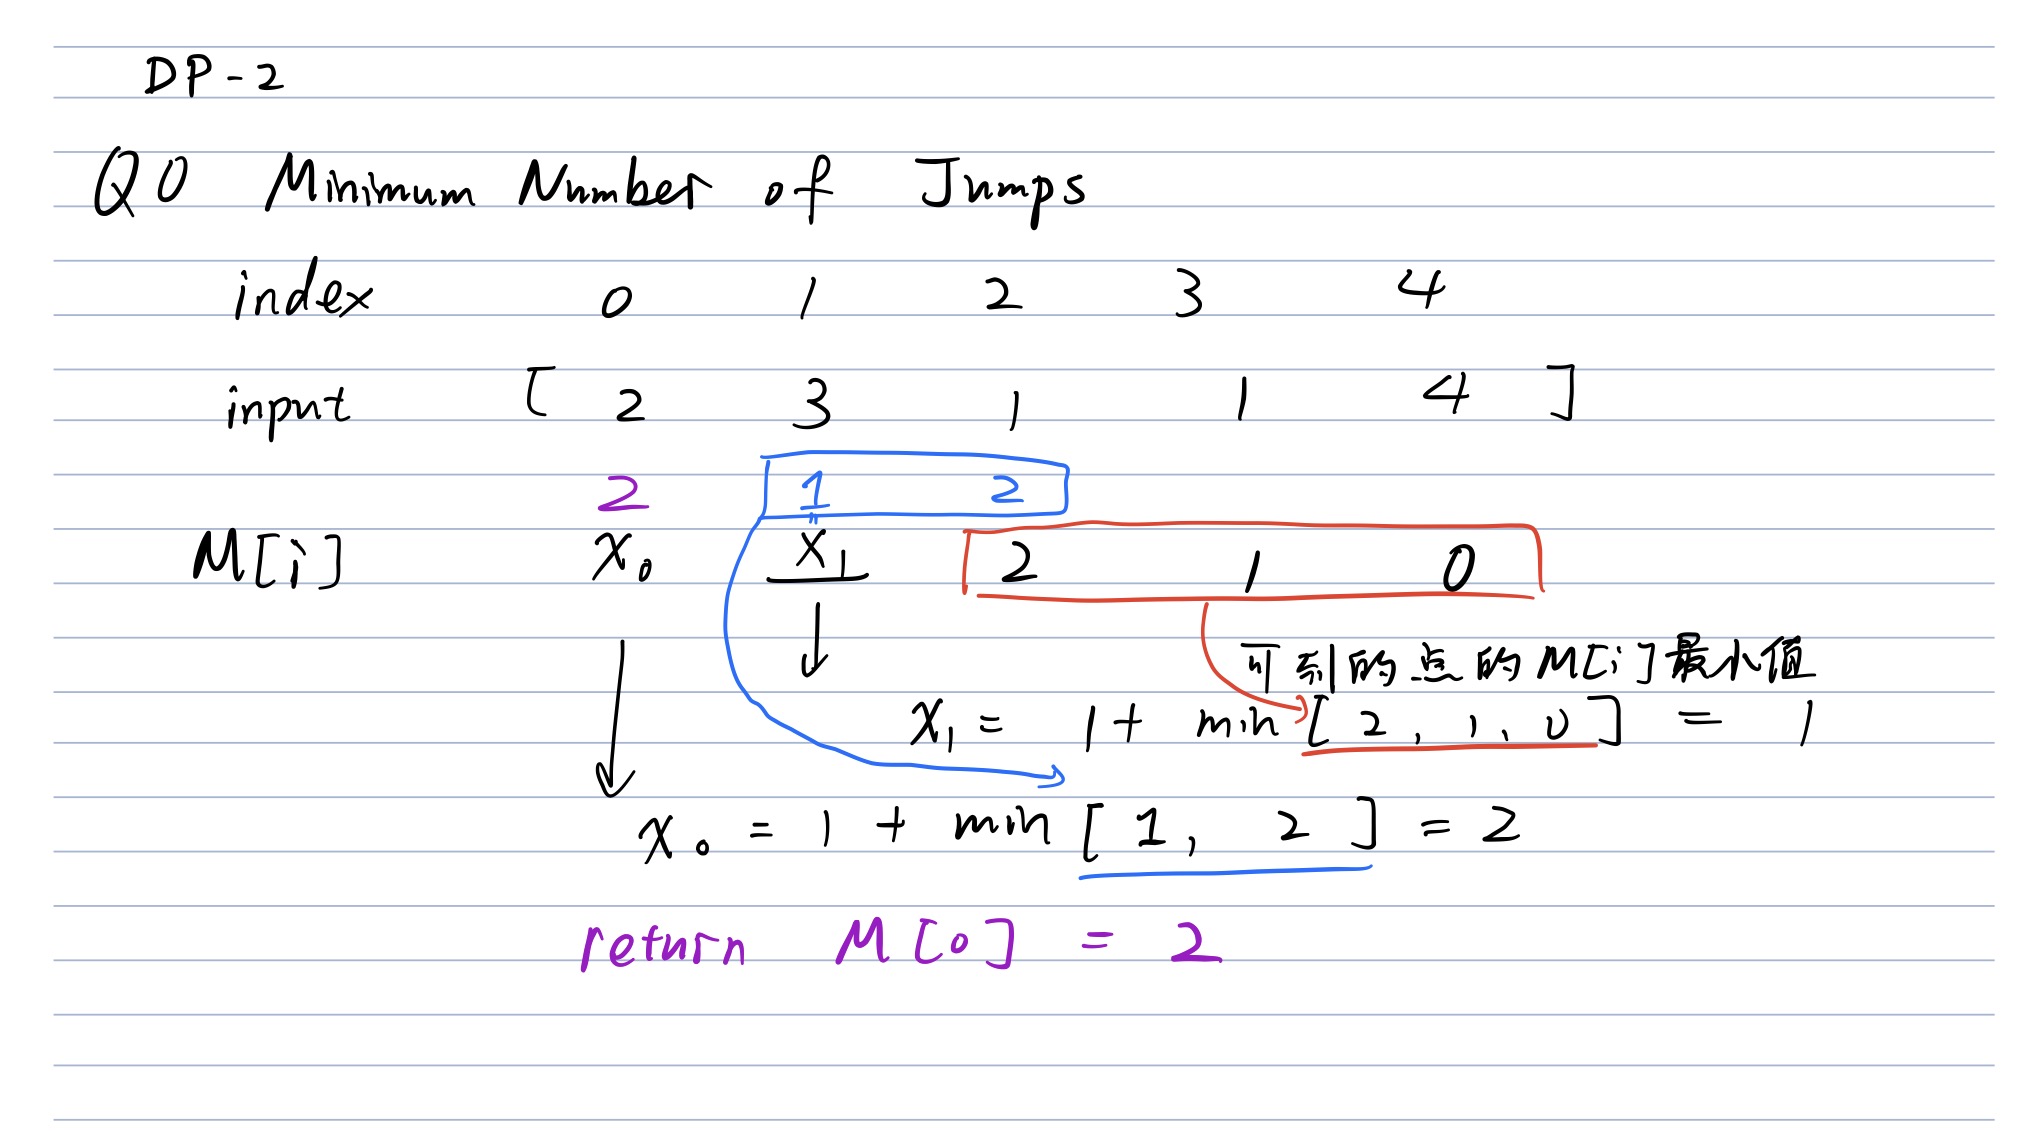 DP-2
Q0 Minimum Number of Jumps
index 0 1 2 3 4
input [ 2 3 1 1 4 ]
2 1 2
M[i] x₀ x₁ 2 1 0
可到的点的M[i]最小值
x₁ = 1 + min [ 2, 1, 0 ] = 1
x₀ = 1 + min [ 1, 2 ] = 2
return M[0] = 2